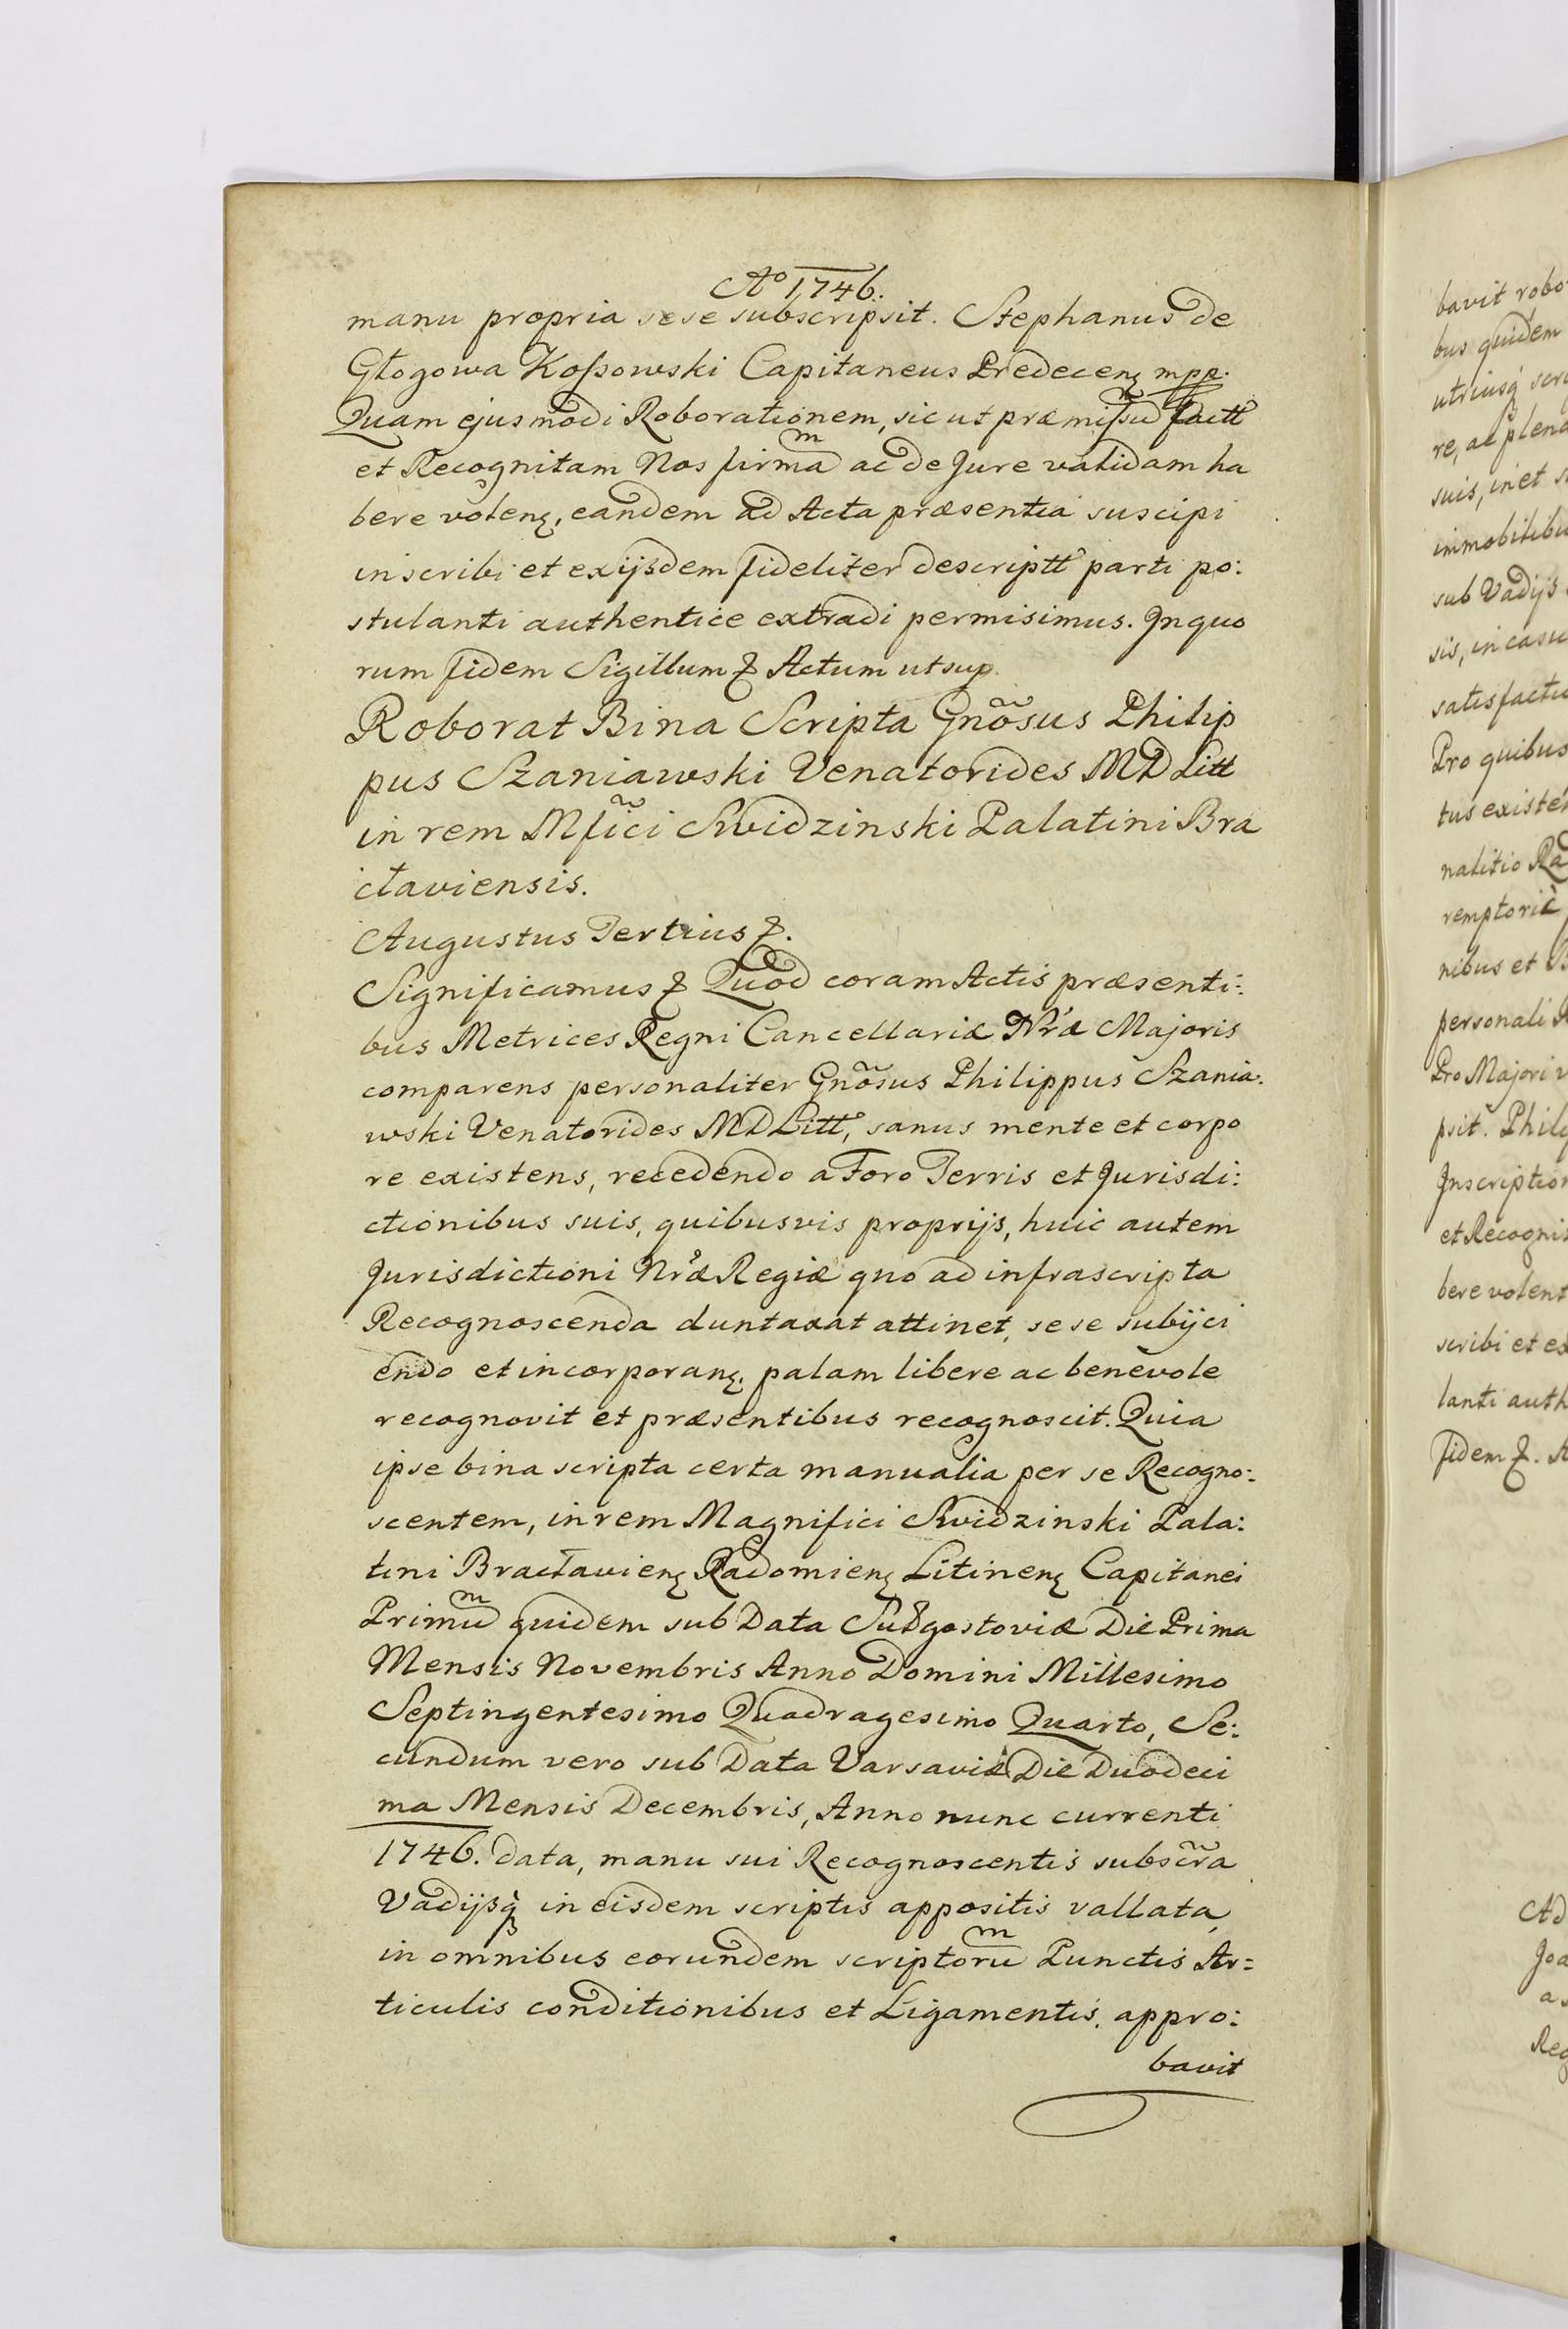 Aº 1746.
manu propria sese subscripsit. Stephanus de
Głogowa Kossowski Capitaneus Predecen̄ mpp.
Quam ejusmodi Roborationem, sicut præmissũ factt
et Recognitam Nos firmã ac de Jure validam ha
bere volen̄, eandem ad Acta præsentia suscipi
inscribi et exijsdem fideliter descriptt parti po:
stulanti authentice extradi permisimus. Jn quo
rum fidem Sigillum & Actum ut sup.
Roborat Bina Scripta Gnõsus Philip
pus Szaniawski Venatorides MDLitt
in rem Mfĩci Swidzinski Palatini Bra
cłaviensis.
Augustus Tertius &.
Significamus & Quod coram Actis præsenti:
bus Metrices Regni Cancellariæ Nr̃æ Majoris
comparens personaliter Gnõsus Philippus Szania:
wski Venatorides MDLitt, sanus mente et corpo
re existens, recedendo a Foro Terris et Jurisdi:
ctionibus suis, quibusvis proprijs, huic autem
Jurisdictioni Nr̃æ Regiæ quo ad infrascripta
Recognoscenda duntaxat attinet, sese subijci
endo et incorporan̄, palam libere ac benevole
recognovit et præsentibus recognoscit. Quia
ipse bina scripta certa manualia per se Recogno:
scentem, in rem Magnifici Swidzinski Pala:
tini Bracłavien̄ Radomien̄ Litinen̄ Capitanei
Primũ quidem sub Data Sulgostoviæ Die Prima
Mensis Novembris Anno Domini Millesimo
Septingentesimo Quadragesimo Quarto, Se:
cundum vero sub Data Varsaviæ Die Duodeci
ma Mensis Decembris, Anno nunc currenti
1746. data, manu sui Recognoscentis subscr̃a
Vadijsq̃ in eisdem scriptis appositis vallata,
in omnibus eorundem scriptorũ Punctis Ar=
ticulis conditionibus et Ligamentis, appro:
bavit
bavit robo
bus quidem
utriusq̃ scr
re, ac plena
suis, in et s
immobilibu
sub Vadijs
sis, in casu
satisfactio
Pro quibus
tus existen
nalitio Ra
remptorie
nibus et B
personali R
Pro Majori v
psit. Phili
Jnscription
et Recogni
bere volent
scribi et ex
lanti auth
fidem &. A
Ad
Joa
a
Reg